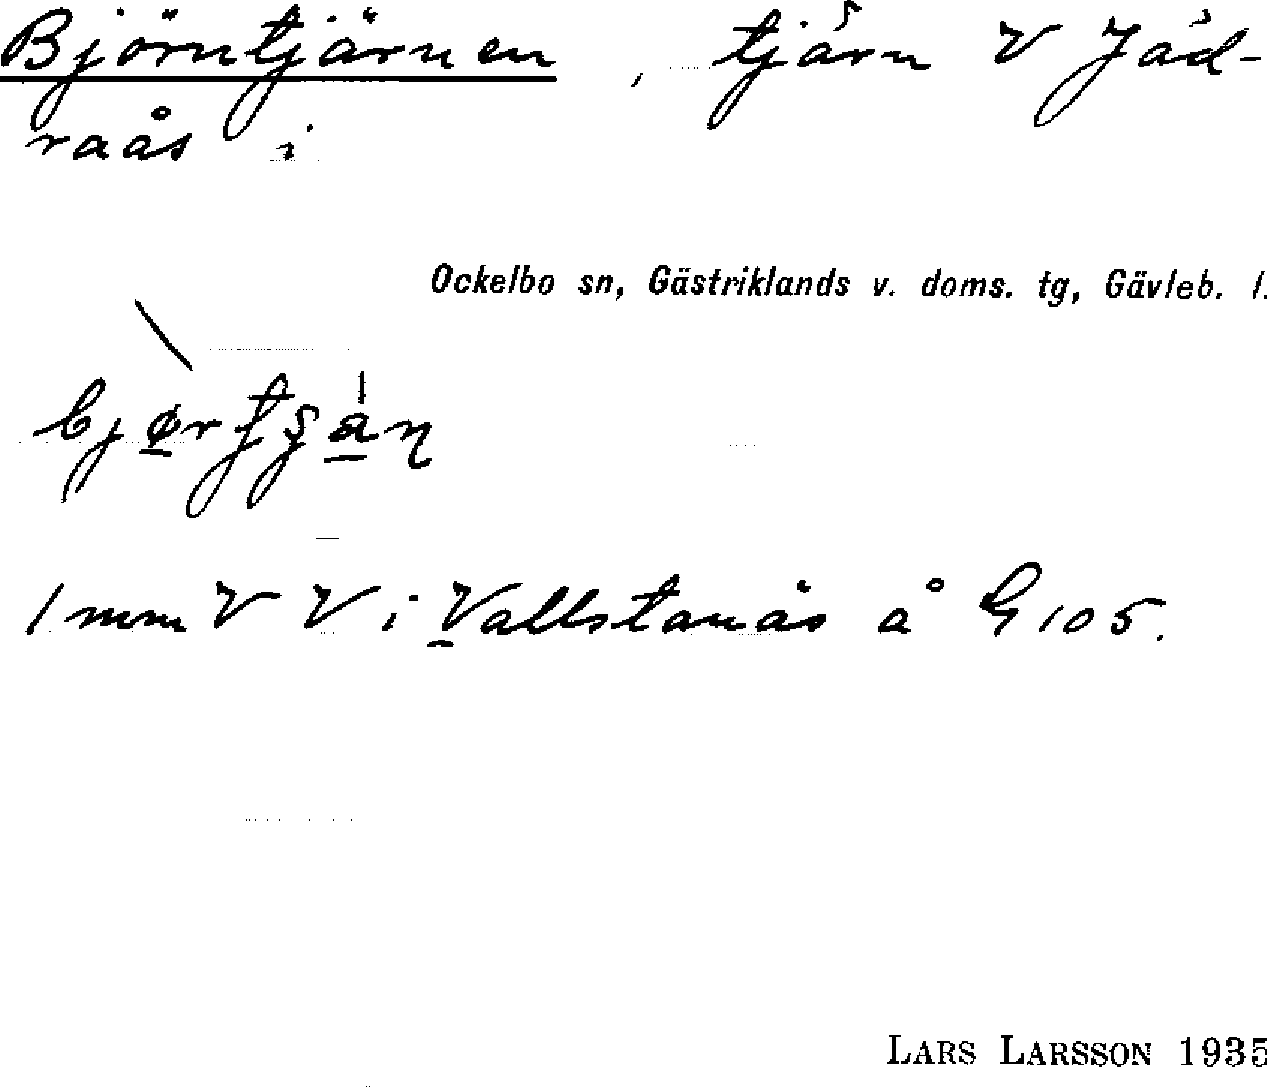 Björntjärnen, tjärn V Jäd-
raås i
Ockelbo sn, Gästriklands v. doms. tg, Gävleb. l.
1 mm V V i Vallstanås å G 105.
LARS LARSSON 1935